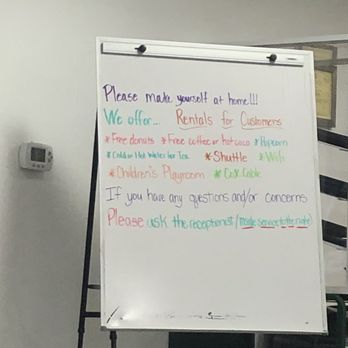 Please make yourself at home!!!
We offer... Rentals for Customers
*Free donuts *Free coffee or hot coco *Popcorn
*Cold or Hot Water for Tea *Shuttle *Wifi
*Children's Playroom *Cox Cable
If you have any questions and/or concerns
Please ask the receptionist/